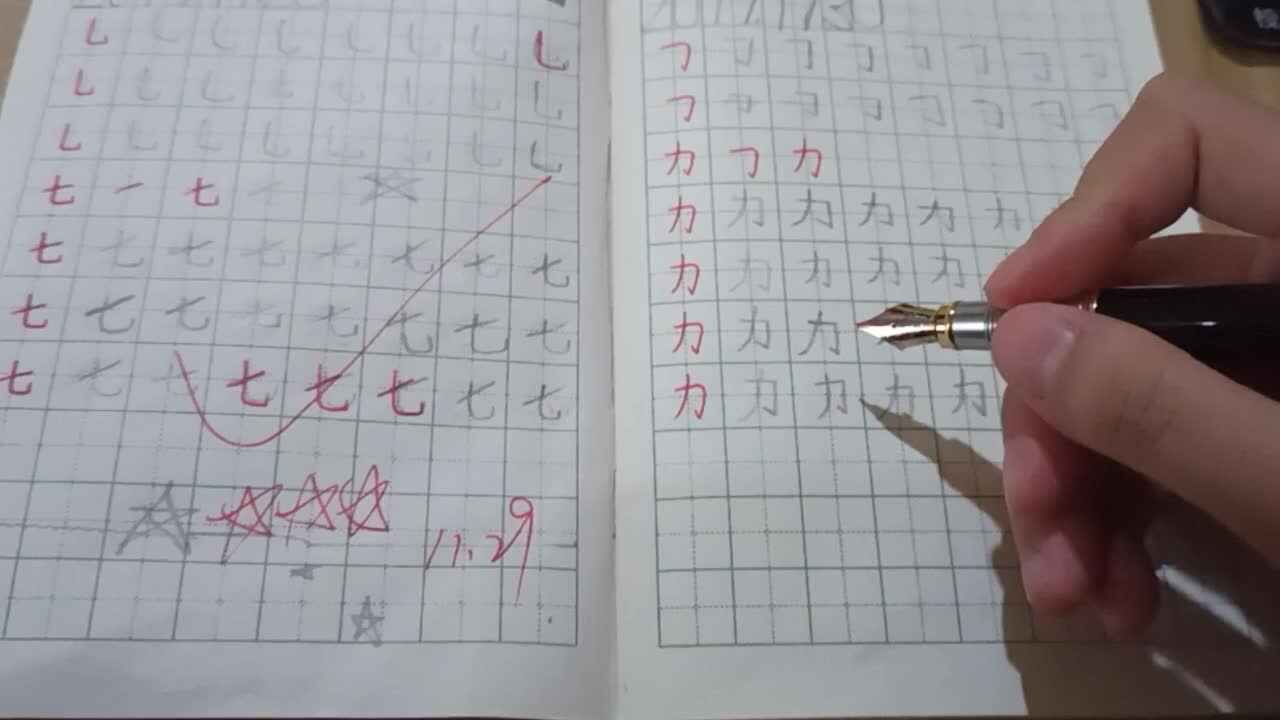 乚 乚 乚 乚 乚 乚 乚 乚
乚 乚 乚 乚 乚 乚 乚 乚
乚 乚 乚 乚 乚 乚 乚 乚
七 一 七
七 七 七 七 七 七 七 七
七 七 七 七 七 七 七 七
七 七 七 七 七 七 七 七
11.29
𠃌 𠃌 𠃌 𠃌 𠃌 𠃌 𠃌 𠃌
𠃌 𠃌 𠃌 𠃌 𠃌 𠃌 𠃌 𠃌
力 𠃌 力
力 力 力 力 力 力
力 力 力 力 力
力 力 力
力 力 力 力 力